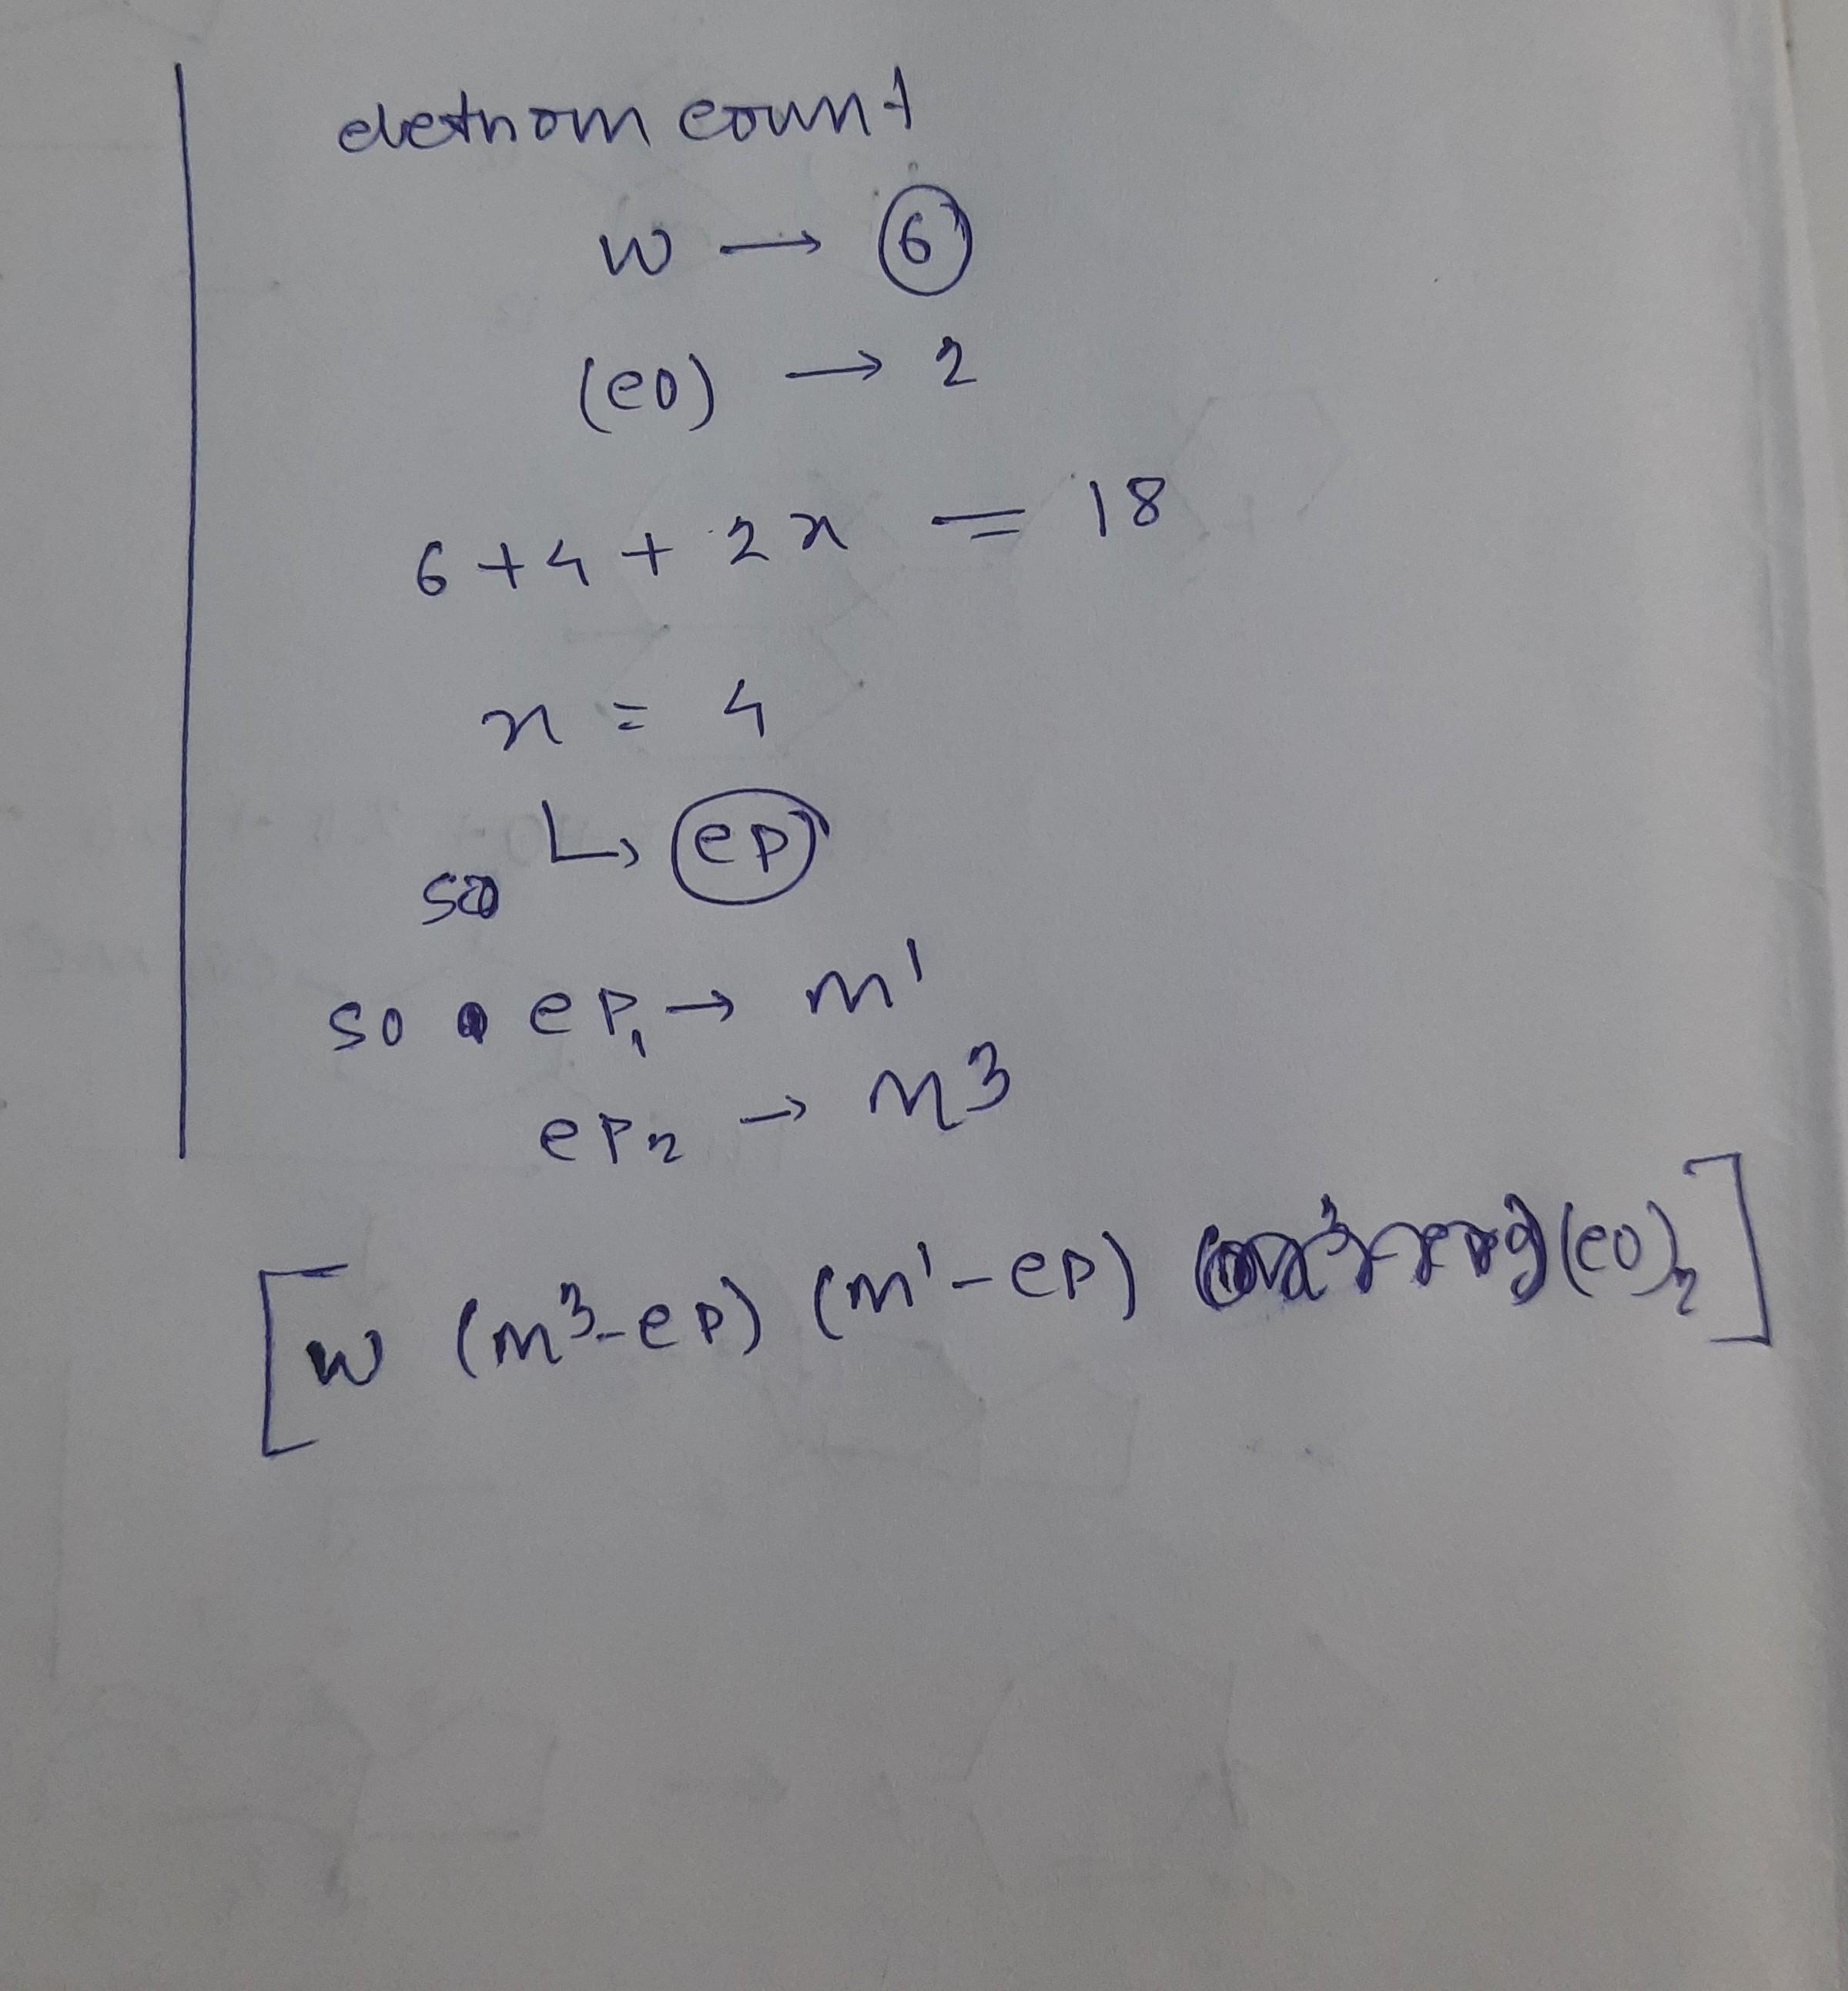 eletnom count
w → 6
(eo) → 2
6 + 4 + 2x = 18
x = 4
↳ ep
so
so ep₁ → m¹
ep₂ → m3
[w (m³-ep) (m¹-ep) (eo)₂]